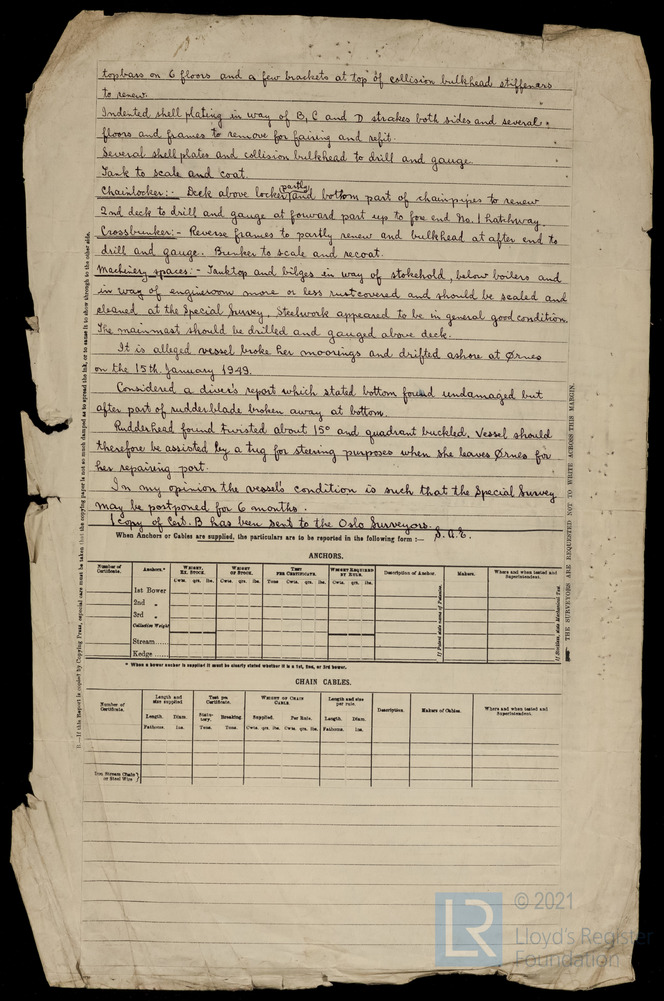 topbars on 6 floors and a few brackets at top of collision bulkhead stiffeners
to renew.
Indented shell plating in way of B, C and D strakes both sides and several
floors and frames to remove for fairing and refit.
Several shell plates and collision bulkhead to drill and gauge.
Tank to scale and coat.
Chainlocker:- Deck above locker partly and bottom part of chainpipes to renew
2nd deck to drill and gauge at forward part up to fore end No. 1 hatchway
Crossbunker:- Reverse frames to partly renew and bulkhead at after end to
drill and gauge. Bunker to scale and recoat.
Machinery spaces:- Tanktop and bilges in way of stokehold, below boilers and
in way of engineroom more or less rustcovered and should be scaled and
cleaned at the Special Survey. Steelwork appeared to be in general good condition.
The mainmast should be drilled and gauged above deck.
It is alleged vessel broke her moorings and drifted ashore at Ørnes
on the 15th January 1949.
Considered a diver's report which stated bottom found undamaged but
after part of rudderblade broken away at bottom.
Rudderhead found twisted about 15° and quadrant buckled. Vessel should
therefore be assisted by a tug for steering purposes when she leaves Ørnes for
her repairing port.
In my opinion the vessel's condition is such that the Special Survey
may be postponed for 6 months.
1 copy of Cert. B has been sent to the Oslo Surveyors.
When Anchors or Cables are supplied, the particulars are to be reported in the following form :—
ANCHORS.
Number of Certificate. Anchors.* Weight, Ex. Stock. Weight of Stock. Test per Certificate. Weight Required by Rule. Description of Anchor. Makers. Where and when tested and Superintendent.
Cwts. qrs. lbs. Cwts. qrs. lbs. Tons Cwts. qrs. lbs. Cwts. qrs. lbs.
1st Bower
2nd „
3rd „
Collective Weight
Stream
Kedge
* When a bower anchor is supplied it must be clearly stated whether it is a 1st, 2nd, or 3rd bower.
CHAIN CABLES.
Number of Certificate. Length and size supplied Test per Certificate. Weight of Chain Cable. Length and size per rule. Description. Makers of Cables. Where and when tested and Superintendent.
Length. Diam. Statutory. Breaking. Supplied. Per Rule. Length. Diam.
Fathoms. Ins. Tons. Tons. Cwts. qrs. lbs. Cwts. qrs. lbs. Fathoms. Ins.
Iron Stream Chain or Steel Wire
THE SURVEYORS ARE REQUESTED NOT TO WRITE ACROSS THIS MARGIN.
LR
© 2021
Lloyd's Register
Foundation